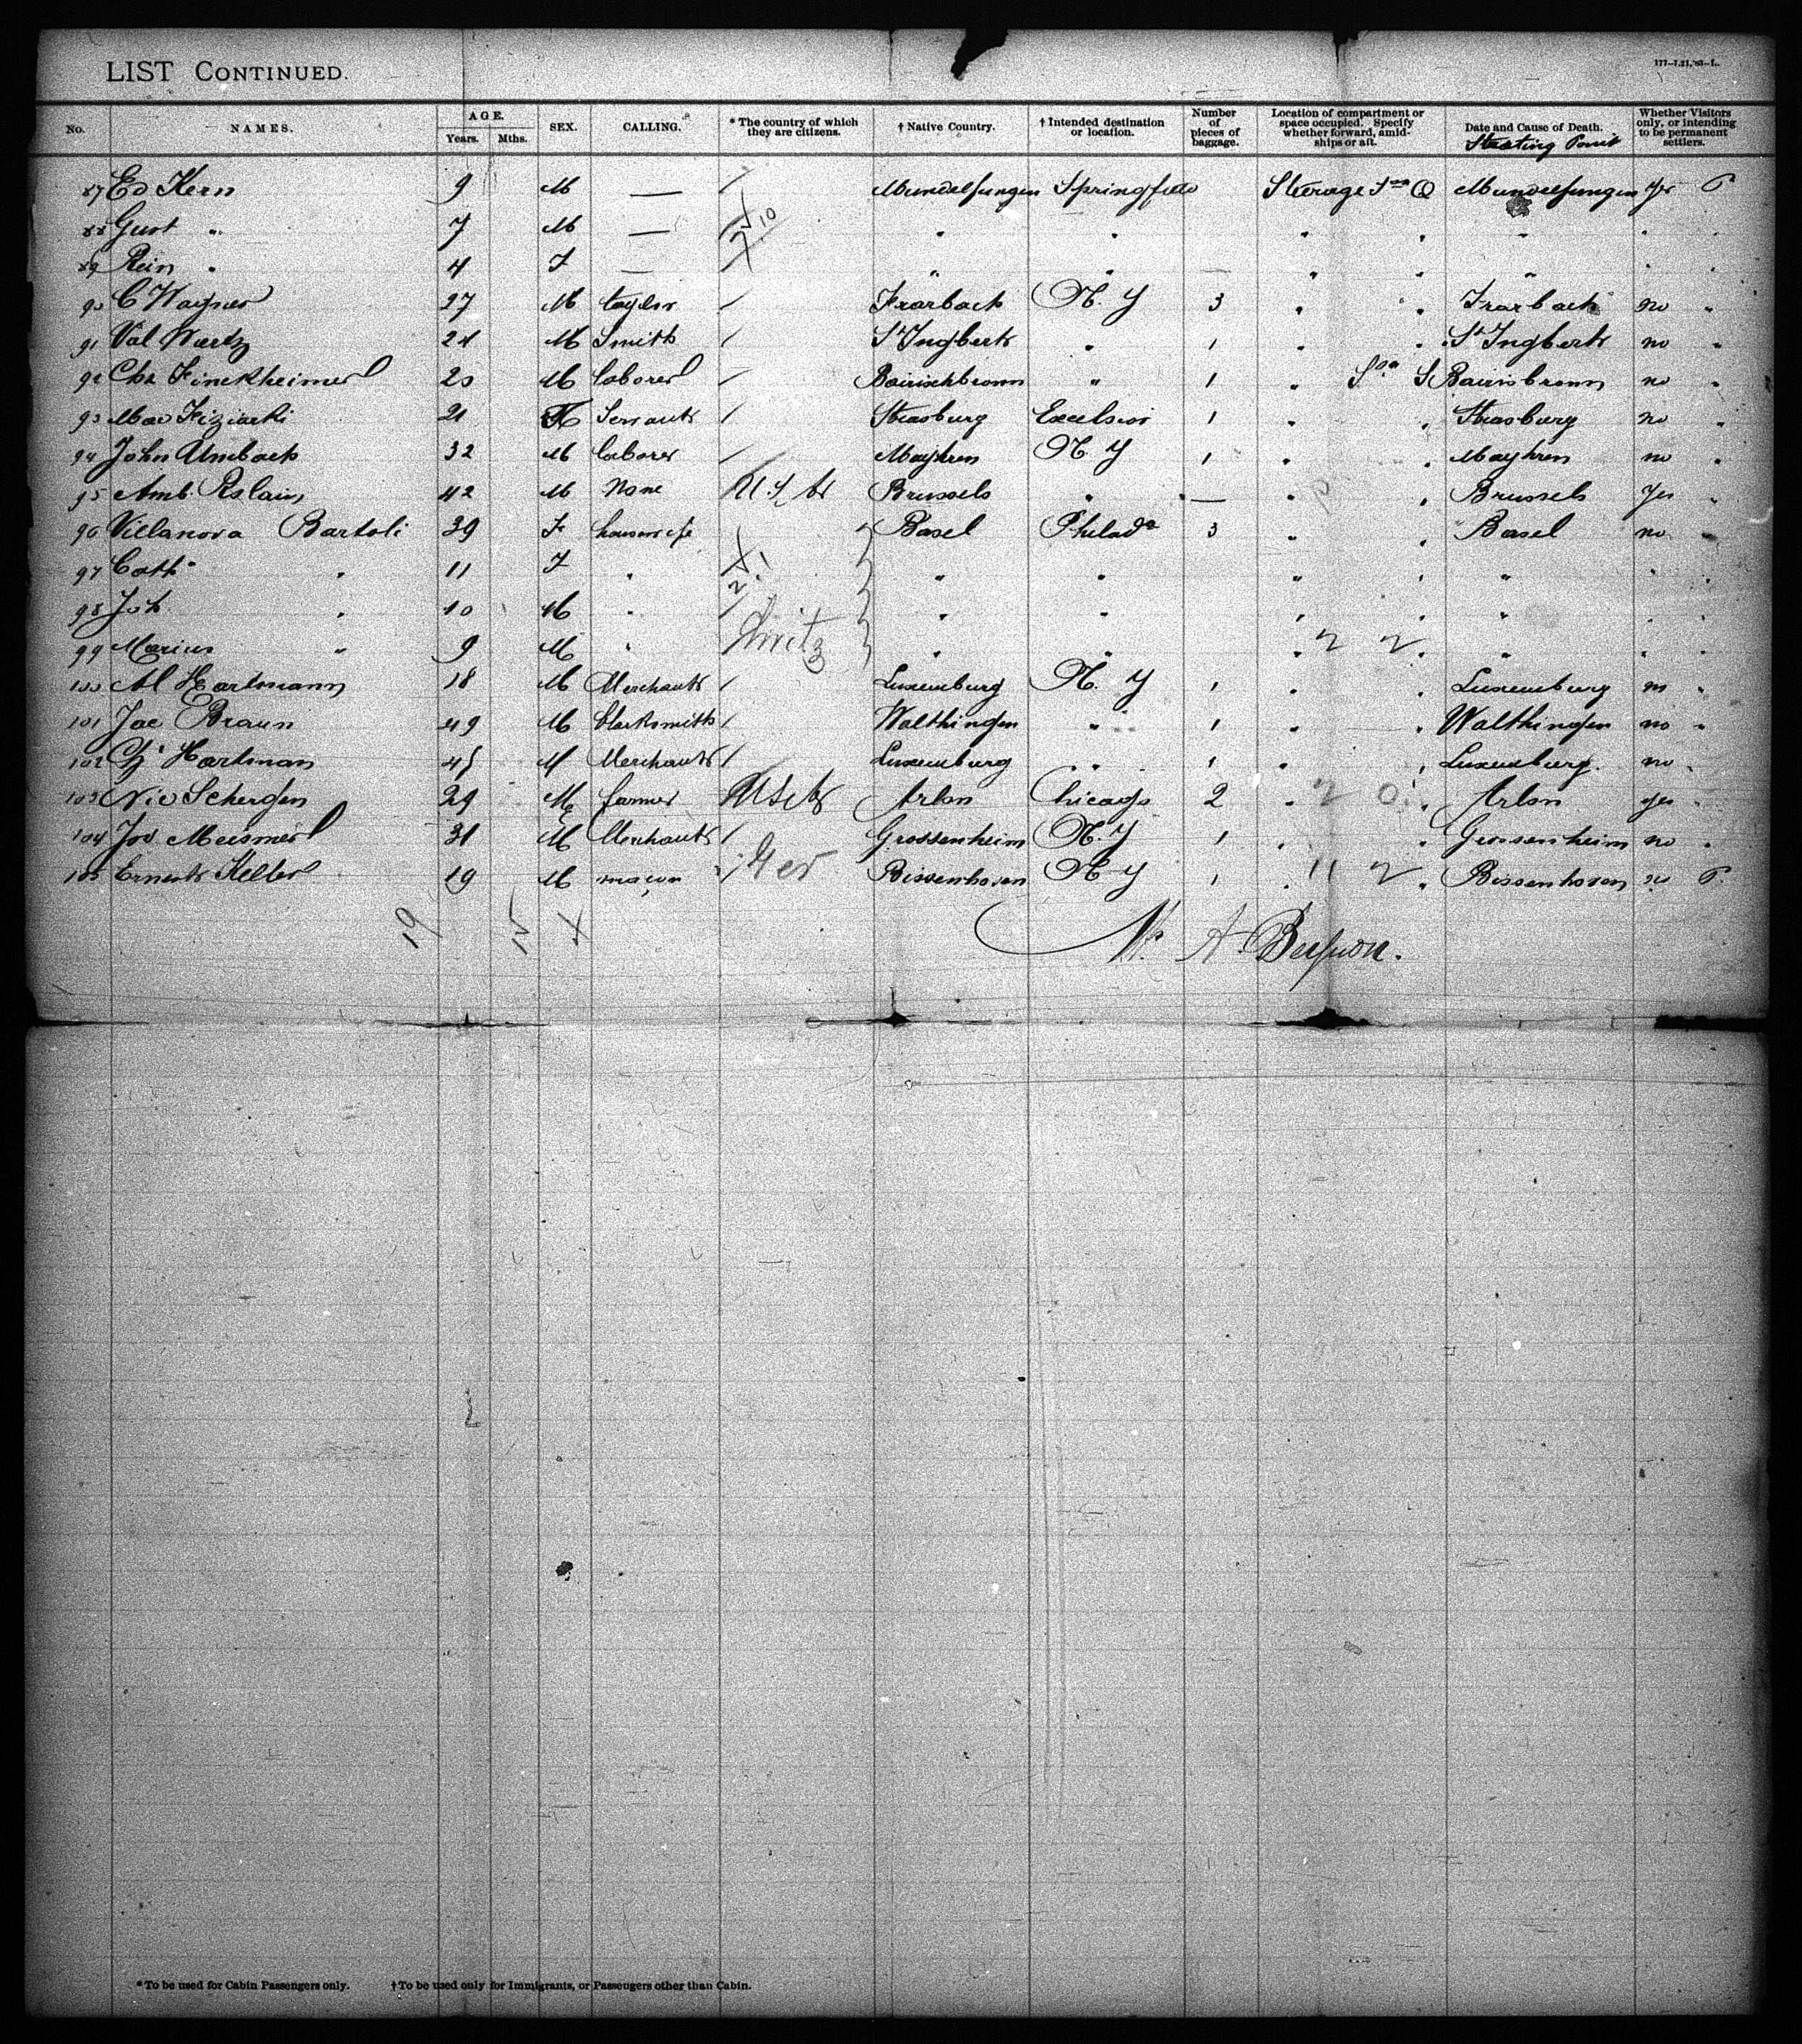 LIST CONTINUED.
177-7,21,'83-L.
No. NAMES. AGE. Years. Mths. SEX. CALLING. * The country of which they are citizens. † Native Country. † Intended destination or location. Number of pieces of baggage. Location of compartment or space occupied. Specify whether forward, amidships or aft. Date and Cause of Death. Starting Point Whether Visitors only, or intending to be permanent settlers.
87 Ed Kern 9 M — / Mundelfingen Springfield Steerage Mundelfingen yes
88 Gust " 7 M — 10 " " " " "
89 Rein " 4 F — " " — " " "
90 C Wagner 27 M taylor / Trarbach N. Y 3 " " Trarbach no "
91 Val Wurtz 24 M Smith / St Ingbert " 1 " " St Ingbert no "
92 Chs Finckheimer 20 M laborer / " 1 " S no "
93 21 F Servant / Strasburg Excelsior 1 " " Strasburg no "
94 John Umbach 32 M laborer / Mayhren N. Y 1 " " Mayhren no "
95 Amb. 42 M None U.S. A Brussels " — " " Brussels Yes "
96 Villanova Bartoli 39 F housewife Basel Philada 3 " " Basel no "
97 Cath " " 11 F " " " " " "
98 Joh " 10 M " / " " " " "
99 Marius " 9 M " " " " 2 2 " "
100 Al Hartmann 18 M Merchant / Luxemburg N. Y 1 " " Luxemburg no "
101 Jac Braun 49 M blacksmith / Walthingen " 1 " " Walthingen no "
102 Hartman 45 M Merchant / Luxemburg " 1 " " Luxemburg. no "
103 Nic Schergen 29 M farmer USA Arlon Chicago 2 " 2 0 " Arlon yes "
104 Jos Meismer 31 M Merchant / Grossenheim N. Y 1 " " Grossenheim no "
105 Ernest Keller 19 M mason / Ger Bissenhoven N Y 1 " 11 2 " Bissenhoven no
19 15 X
*To be used for Cabin Passengers only. †To be used only for Immigrants, or Passengers other than Cabin.